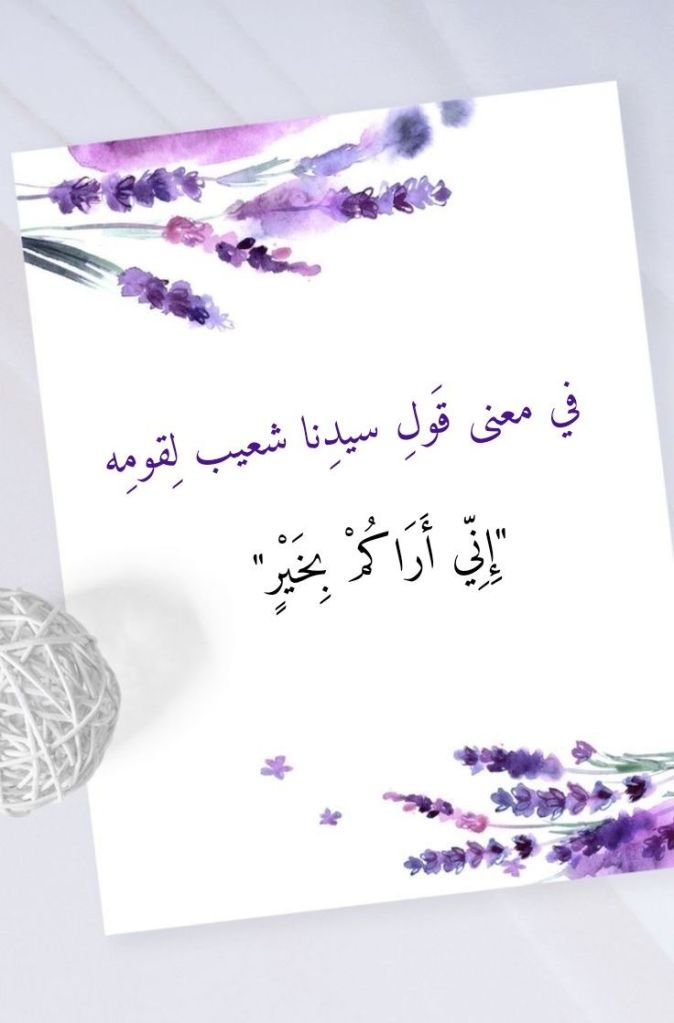 في معنى قَولِ سيدِنا شعيب لِقومِه
"إِنِّي أَرَاكُمْ بِخَيْرٍ"